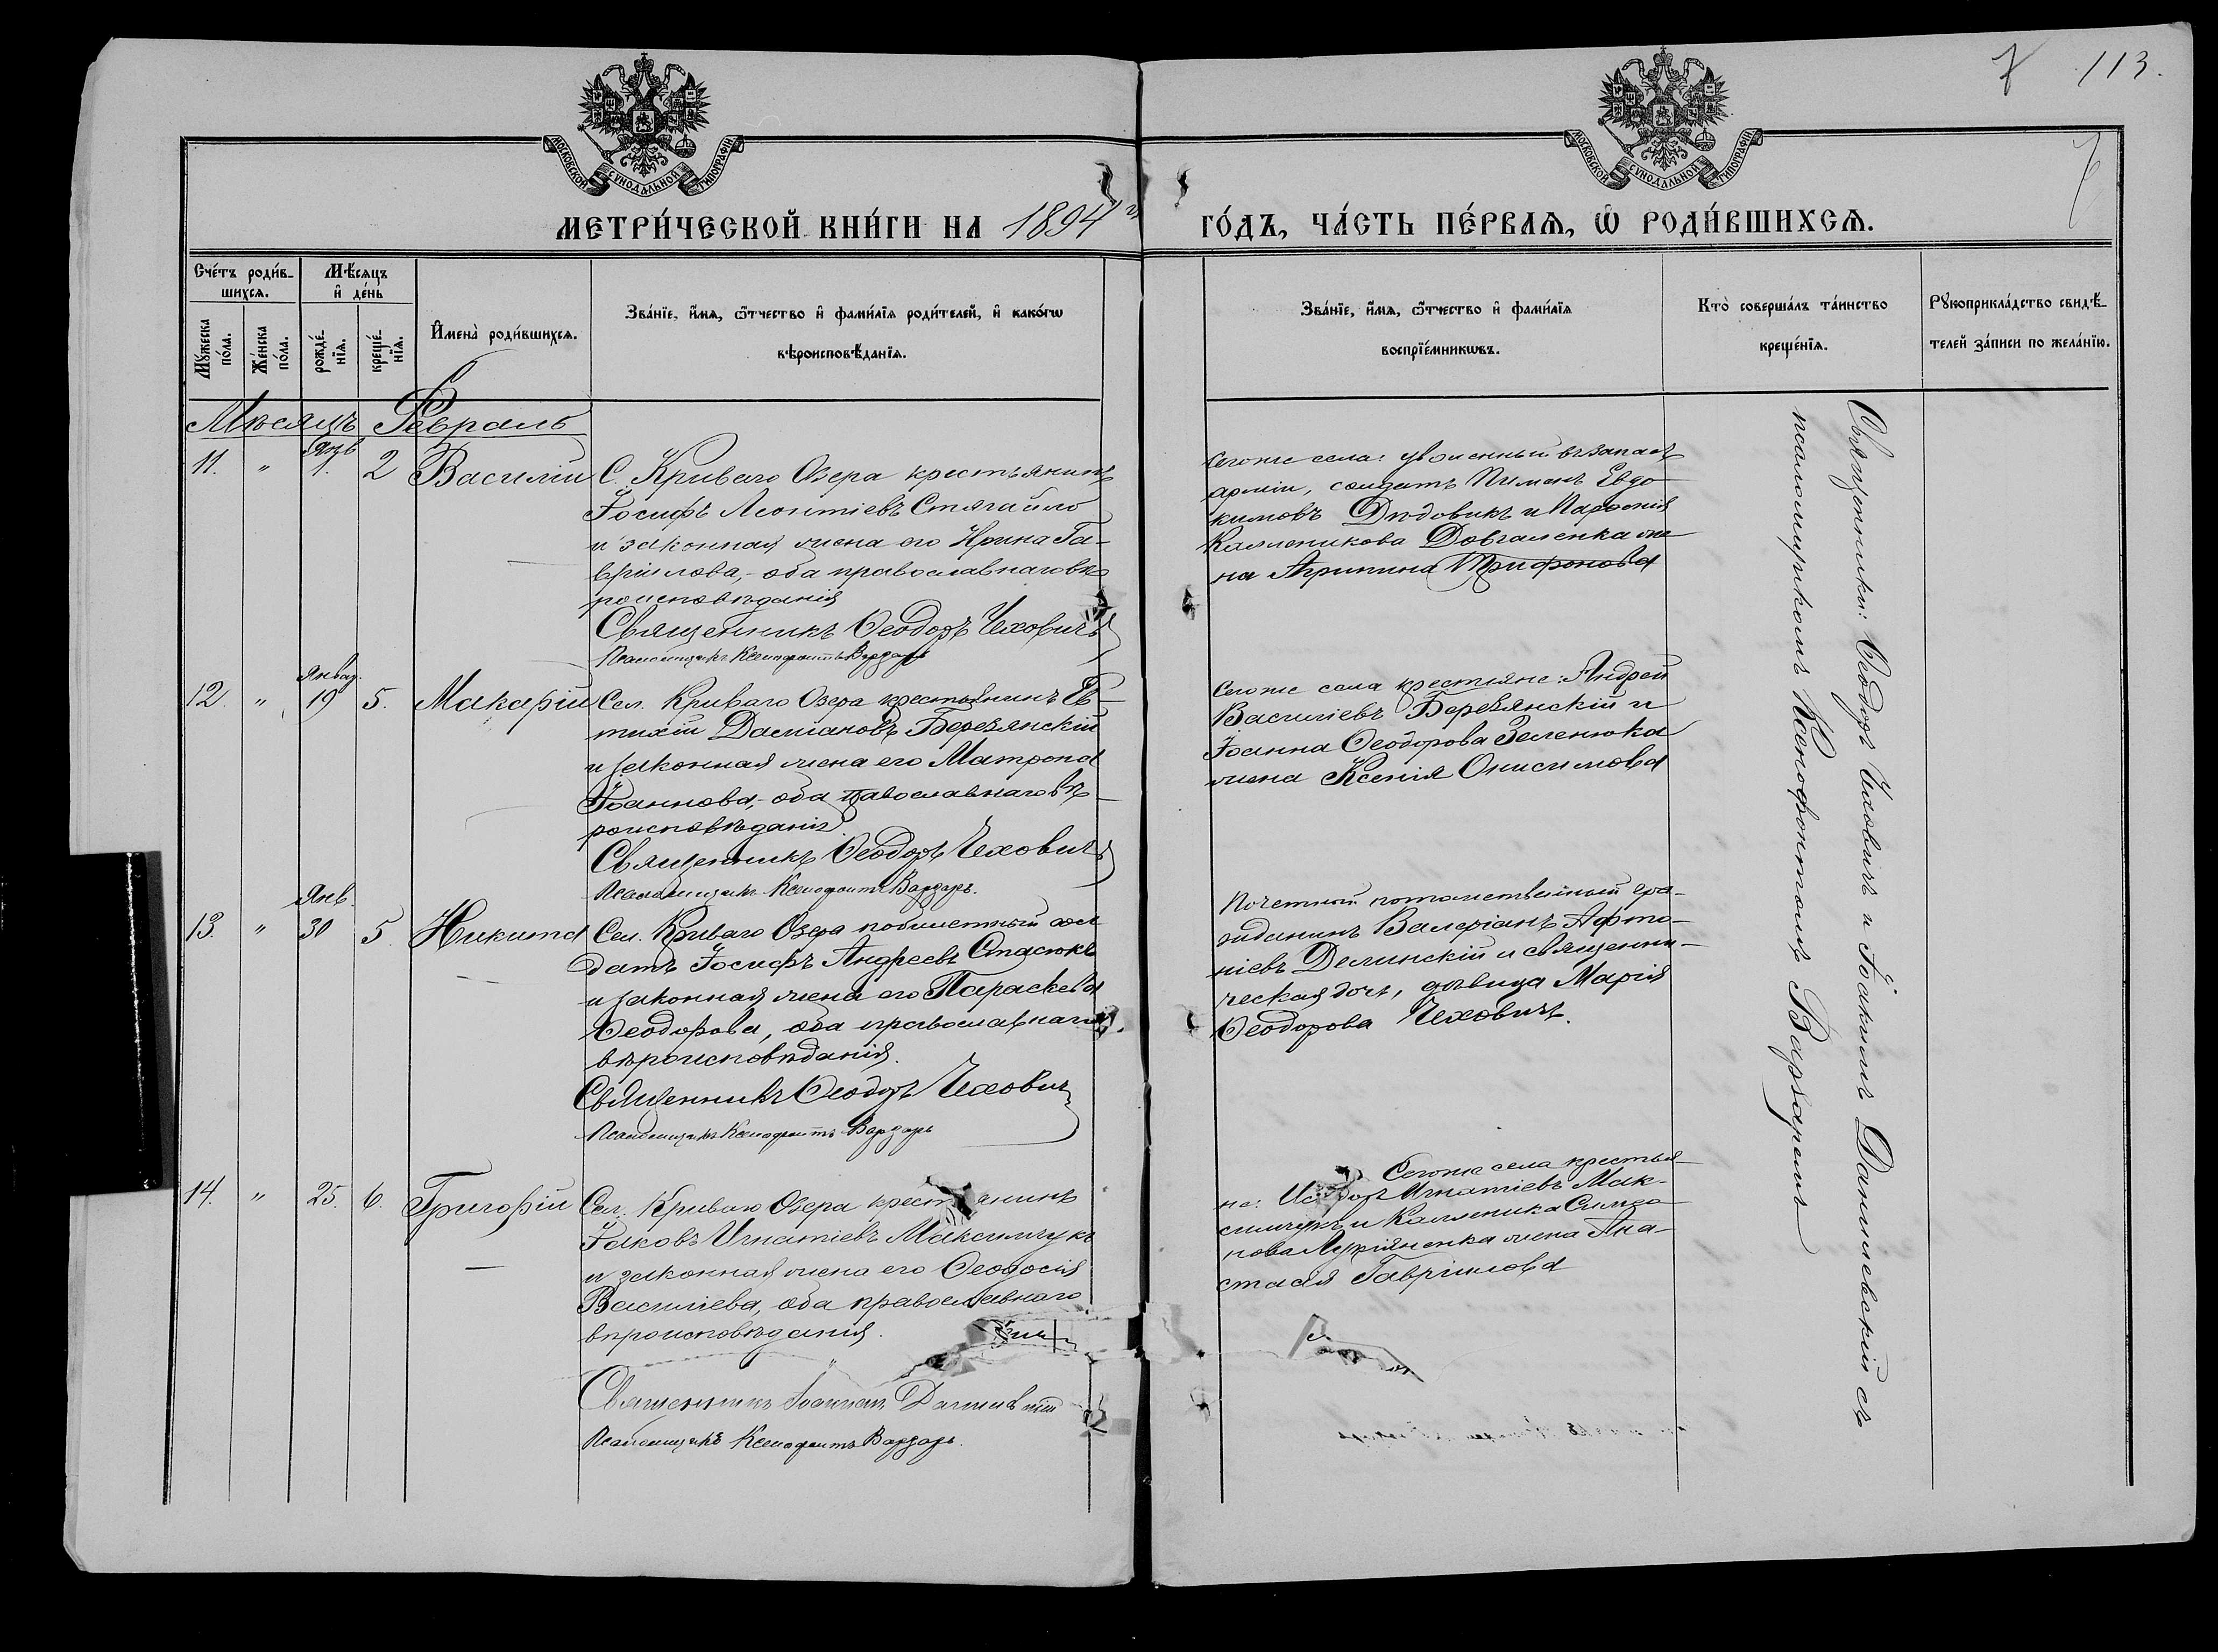 7 113.
7
МОСКОВСКОЙ СѴНОДАЛЬНОЙ ТИПОГРАФІИ
МОСКОВСКОЙ СѴНОДАЛЬНОЙ ТИПОГРАФІИ
МЕТРИ́ЧЕСКОЙ КНИ́ГИ НА 1894 ГО́ДЪ, ЧА́СТЬ ПЕ́РВАѦ, Ѡ РОДИ́ВШИХСѦ.
Сче́тъ роди́в-
шихсѧ.
Мꙋ́жеска по́ла.
Же́нска по́ла.
Мѣ́сѧцъ
и҆ де́нь
рожде́-
нїѧ.
креще́-
нїѧ.
И҆мена̀ роди́вшихсѧ.
Зва́нїе, и҆́мѧ, ѻ҆́тчество и҆ фами́лїѧ роди́телей, и҆ како́гѡ
вѣроисповѣ́данїѧ.
Зва́нїе, и҆́мѧ, ѻ҆́тчество и҆ фами́лїѧ
воспрїе́мникѡвъ.
Кто̀ соверша́лъ та́инство
креще́нїѧ.
Рꙋкоприкла́дство свидѣ́-
телей за́писи по жела́нїю.
Мѣсяцъ Февраль
11. " Янв 1. 2 Василій С. Криваго Озера крестьянинъ
Іосифъ Леонтіевъ Стягайло
и законная жена его Ирина Га-
вріилова,- оба православнаго вѣ-
роисповѣданія
Священникъ Ѳеодоръ Чеховичъ
Псаломщикъ Ксенофонтъ Варзарь
Тогоже села: уволенный въ запасъ
арміи, солдатъ Пименъ Евдо-
кимовъ Дѣдовикъ и
Каленикова Довгаленка же-
на Агрипина Трифонова
12. " Январ. 19 5. Макарій Сел. Криваго Озера крестьянинъ Ев-
тихій Даміановъ Березянскій
и законная жена его Матрона
Іоаннова,- оба православнаго вѣ-
роисповѣданія.
Священникъ Ѳеодоръ Чеховичъ
Псаломщикъ Ксенофонтъ Варзарь.
Тогоже села крестьяне: Андрей
Василіевъ Березянскій и
Іоанна Ѳеодорова Зеленюка
жена Ксенія Онисимова
13. " Янв. 30 5 Никита Сел. Криваго Озера побилетный сол-
датъ Іосифъ Андреевъ Стасюкъ
и законная жена его Параскева
Ѳеодорова, оба православнаго
вѣроисповѣданія.
Священникъ Ѳеодоръ Чеховичъ
Псаломщикъ Ксенофонтъ Варзарь
Почетный потомственный гра-
жданинъ Валеріанъ Афто-
ніевъ Делинскій и священни-
ческая дочь, дѣвица Марія
Ѳеодорова Чеховичъ.
14. " 25. 6. Григорій Сел. Криваго Озера крестьянинъ
Іаковъ Игнатіевъ Максимчукъ
и законная жена его Ѳеодосія
Василіева, оба православнаго
вѣроисповѣданія.
Священникъ Іоакимъ Данилевскій
Псаломщикъ Ксенофонтъ Варзарь.
Тогоже села крестья-
не: Игнатіевъ Мак-
симчукъ и Каленика
жена Ана-
стасія Гавріилова
Священники: Ѳеодоръ Чеховичъ и Іоакимъ Данилевскій съ
псаломщикомъ Ксенофонтомъ Варзаремъ